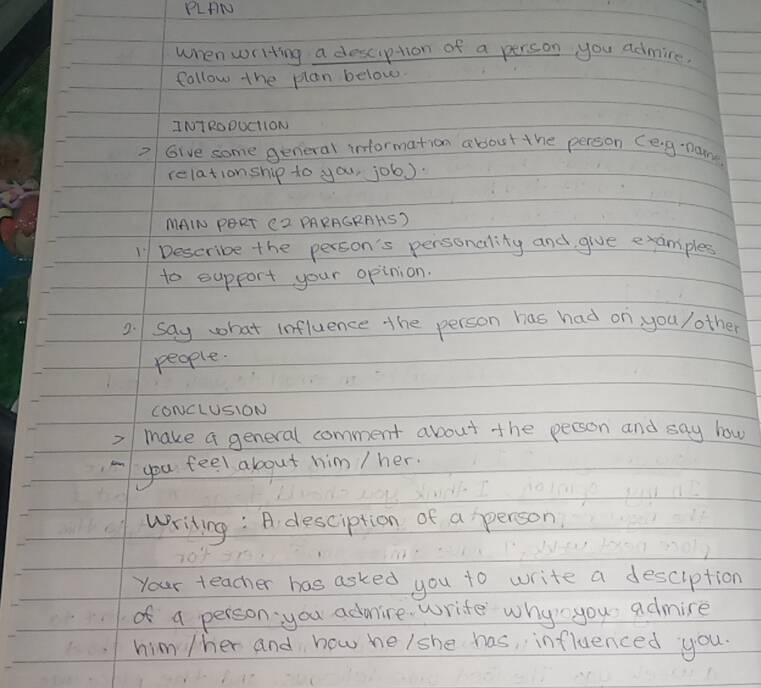 PLAN
When writing a desciption of a person you admire,
follow the plan below.
INTRODUCTION
> Give some general information about the person (e.g. name,
relationship to you, job).
MAIN PART (2 PARAGRAHS)
1. Describe the person's personality and give examples
to support your opinion.
2. Say what influence the person has had on you/other
people.
CONCLUSION
> make a general comment about the person and say how
you feel about him / her.
Writing: A desciption of a person.
Your teacher has asked you to write a desciption
of a person you admire. Write why you admire
him/her and how he/she has influenced you.